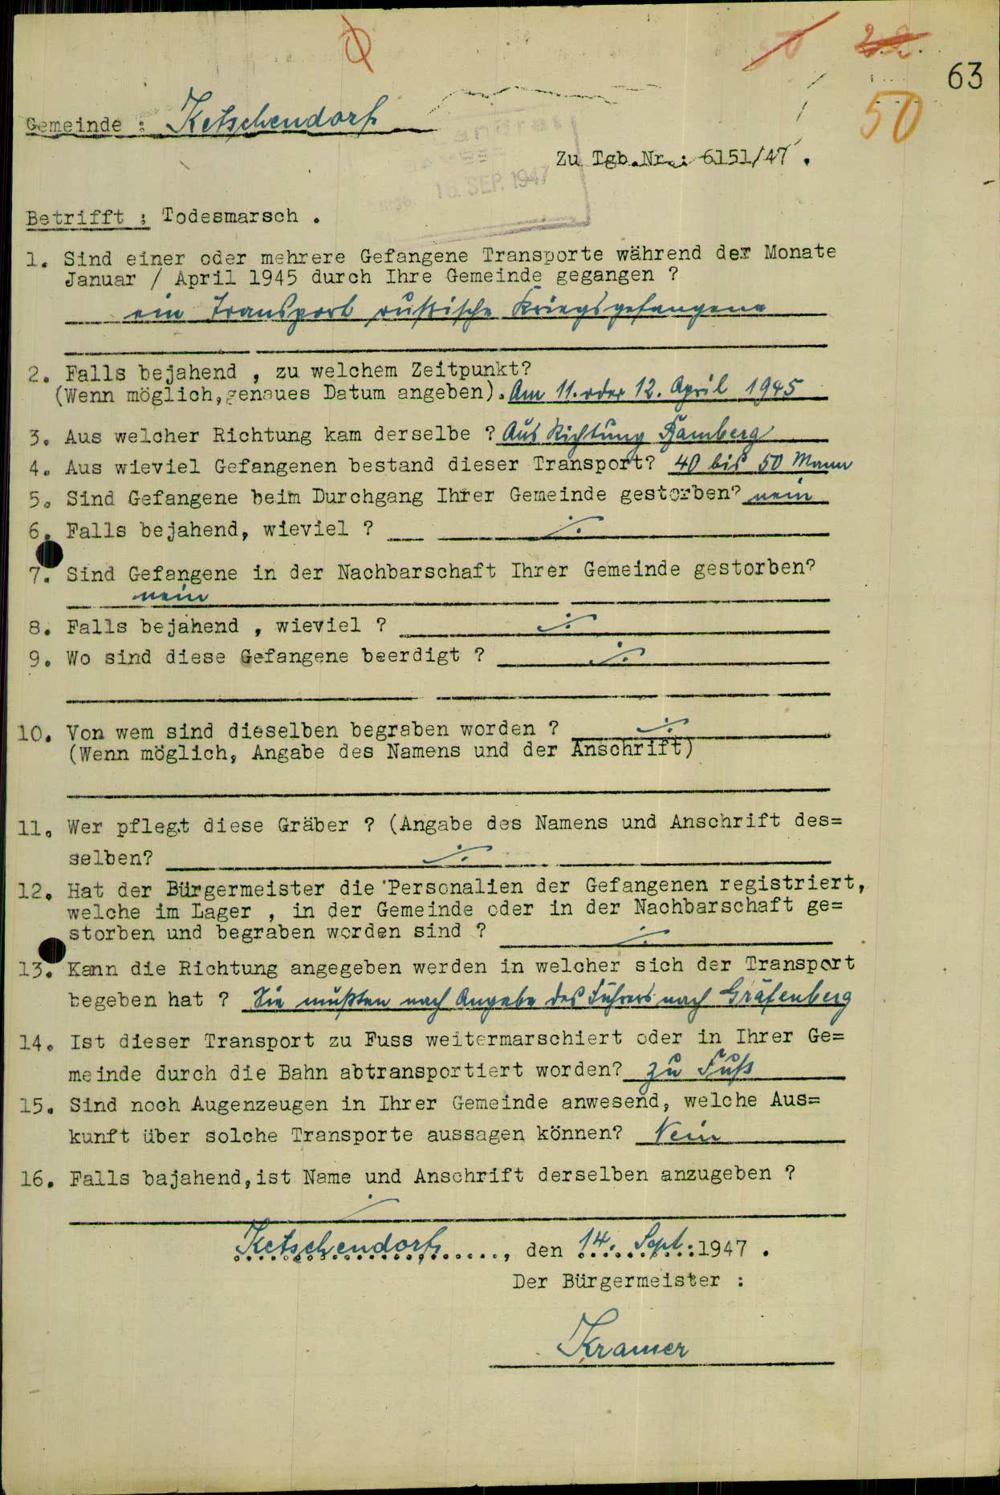 63
50
Gemeinde : Ketschendorf
Zu Tgb.Nr.: 6151/47 .
16. SEP. 1947
Betrifft : Todesmarsch .
1. Sind einer oder mehrere Gefangene Transporte während der Monate
Januar / April 1945 durch Ihre Gemeinde gegangen ?
ein Transport russische Kriegsgefangene
2. Falls bejahend , zu welchem Zeitpunkt?
(Wenn möglich,genaues Datum angeben). Am 11. oder 12. April 1945
3. Aus welcher Richtung kam derselbe ? Aus Richtung Bamberg
4. Aus wieviel Gefangenen bestand dieser Transport? 40 bis 50 Mann
5. Sind Gefangene beim Durchgang Ihrer Gemeinde gestorben? nein
6. Falls bejahend, wieviel ? ./.
7. Sind Gefangene in der Nachbarschaft Ihrer Gemeinde gestorben?
nein
8. Falls bejahend , wieviel ? ./.
9. Wo sind diese Gefangene beerdigt ? ./.
10. Von wem sind dieselben begraben worden ? ./.
(Wenn möglich, Angabe des Namens und der Anschrift)
11. Wer pflegt diese Gräber ? (Angabe des Namens und Anschrift des=
selben? ./.
12. Hat der Bürgermeister die Personalien der Gefangenen registriert,
welche im Lager , in der Gemeinde oder in der Nachbarschaft ge=
storben und begraben worden sind ? ./.
13. Kann die Richtung angegeben werden in welcher sich der Transport
begeben hat ? Sie mußten nach Angabe des Führers nach Gräfenberg
14. Ist dieser Transport zu Fuss weitermarschiert oder in Ihrer Ge=
meinde durch die Bahn abtransportiert worden? zu Fuß
15. Sind noch Augenzeugen in Ihrer Gemeinde anwesend, welche Aus=
kunft über solche Transporte aussagen können? Nein
16. Falls bajahend,ist Name und Anschrift derselben anzugeben ?
./.
Ketschendorf, den 14. Sept. 1947 .
Der Bürgermeister :
Kramer